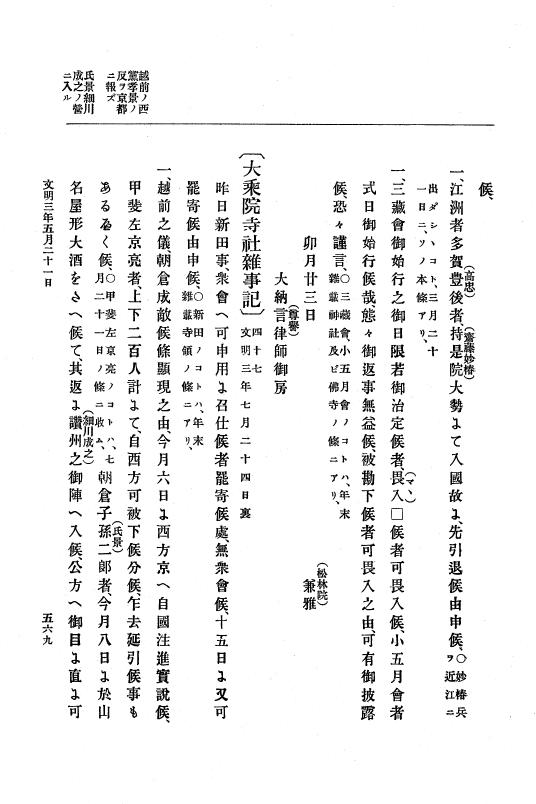 越前ノ西
黨孝景ノ
反ヲ京都
ニ報ズ
氏景細川
成之ノ營
ニ入ル
候、
一、江洲者多賀豊後者(高忠)持是院(齋藤妙椿)大勢よて入國故よ、先引退候由申候、〇妙椿兵ヲ近江ニ
出ダシヽコト、三月二十一日ニ、ソノ本條アリ、
一、三藏會御始行之御日限若御治定候者、畏入(マヽ)□候者可畏入候、小五月會者
式日御始行候哉、態々御返事無益候、被勘下候者可畏入之由、可有御披露
候、恐々謹言、〇三藏會、小五月會ノコトハ、年末雜載神社及ビ佛寺ノ條ニアリ、
卯月廿三日
兼雅(松林院)
大納言律師御房(尊譽)
〔大乘院寺社雜事記〕四十七文明三年七月二十四日裏
昨日新田事、衆會へ可申用よ召仕候者罷寄候處、無衆會候、十五日よ又可
罷寄候由申候、〇新田ノコトハ、年末雜載寺領ノ條ニアリ、
一、越前之儀、朝倉成敵候條顯現之由、今月六日よ西方京へ自國注進實說候、
甲斐左京亮者、上下二百人計よて、自西方可被下候分候、乍去延引候事も
あるゑく候、〇甲斐左京亮ノコトハ、七月二十一日ノ條ニ收ム、朝倉子孫二郎(氏景)者、今月八日よ於山
名屋形大酒をさへ候て、其返よ讚州(細川成之)之御陣へ入候、公方へ御目よ直よ可
文明三年五月二十一日
五六九